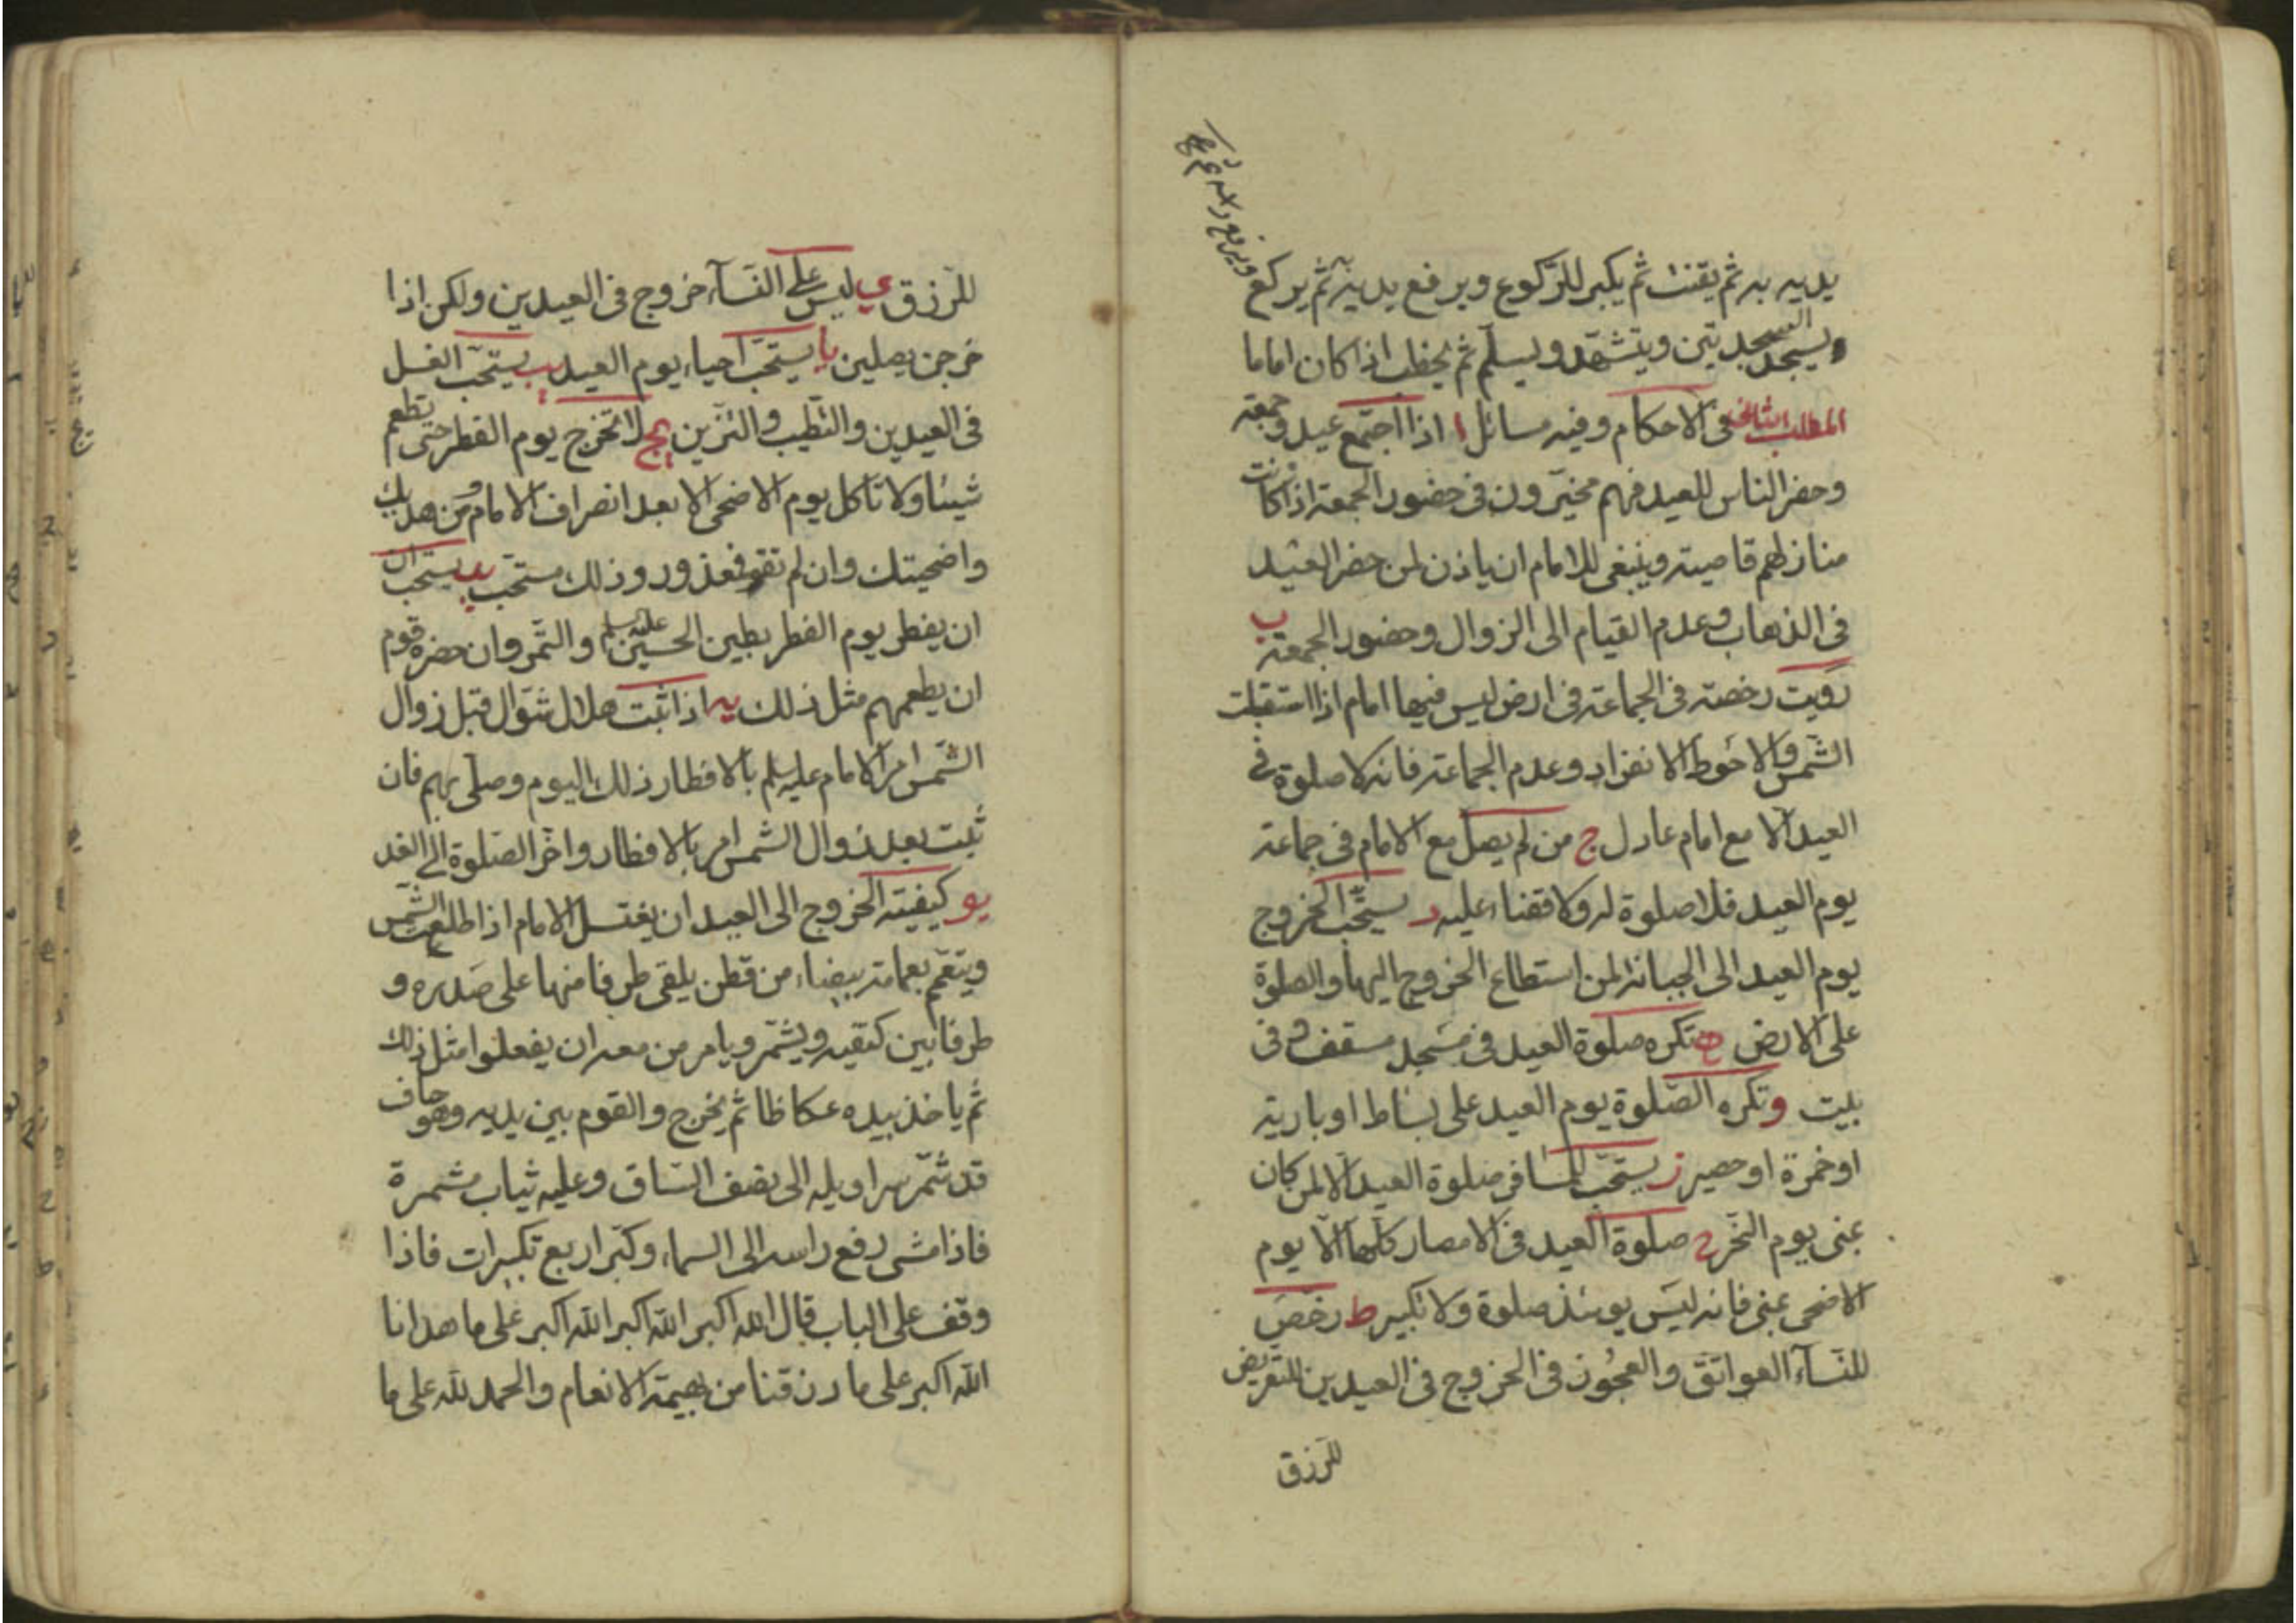 يديه به ثم يقنت ثم يكبر للركوع ويرفع يديه ثم يركع
ويسجد السجدتين ويتشهد ويسلم ثم يخطب اذا كان اماما
المطلب الثانى فى الاحكام وفيه مسائل ا اذا اجتمع عيد وجمعة
وحضر الناس للعيد فهم مخيرون فى حضور الجمعة اذا كانت
منازلهم قاصية وينبغى للامام ان ياذن لمن حضر العيد
فى الذهاب وعدم القيام الى الزوال وحضور الجمعة ب
رويت رخصة فى الجماعة فى ارض ليس فيها امام اذا استقبلت
الشمس والاحوط الانفراد وعدم الجماعة فانه لا صلوة فى
العيد الا مع امام عادل ج من لم يصل مع الامام فى جماعة
يوم العيد فلا صلوة له ولا قضاء عليه د يستحب الخروج
يوم العيد الى الجبانة لمن استطاع الخروج اليها والصلوة
على الارض ه تكره صلوة العيد فى مسجد مسقف و فى
بيت و تكره الصلوة يوم العيد على بساط او بارية
او خمرة او حصير ز يستحب للمسافر صلوة العيد الا لمن كان
بمنى يوم النحر ح صلوة العيد فى الامصار كلها الا يوم
الاضحى بمنى فانه ليس يومئذ صلوة ولا تكبير ط رخص
للنساء العواتق والعجوز فى الخروج فى العيدين للتعرض
للرزق
للرزق ى ليس على النساء خروج فى العيدين ولكن اذا
خرجن يصلين يا يستحب احياء يوم العيد يب يستحب الغسل
فى العيدين والتطيب والتزين يج لا تخرج يوم الفطر حتى تطعم
شيئا ولا تاكل يوم الاضحى الا بعد انصراف الامام ومن هديك
واضحيتك وان لم تقو فمعذور وذلك مستحب يد يستحب ان
ان يفطر يوم الفطر بطين الحسين عليه السلم والتمر وان حضره قوم
ان يطعمهم مثل ذلك يه اذا ثبت هلال شوال قبل زوال
الشمس امر الامام عليه السلم بالافطار ذلك اليوم وصلى بهم فان
ثبت بعد زوال الشمس امر بالافطار واخر الصلوة الى الغد
يو كيفية الخروج الى العيد ان يغتسل الامام اذا طلعت الشمس
ويتعمم بعمامة بيضاء من قطن يلقى طرفا منها على صدره و
طرفا بين كتفيه ويشمر ويامر من معه ان يفعلوا مثل ذلك
ثم ياخذ بيده عكاظا ثم يخرج والقوم بين يديه وهو حاف
قد شمر سراويله الى نصف الساق وعليه ثياب مشمرة
فاذا مشى رفع راسه الى السماء وكبر اربع تكبيرات فاذا
وقف على الباب قال الله اكبر الله اكبر الله اكبر على ما هدانا
الله اكبر على ما رزقنا من بهيمة الانعام والحمد لله على ما